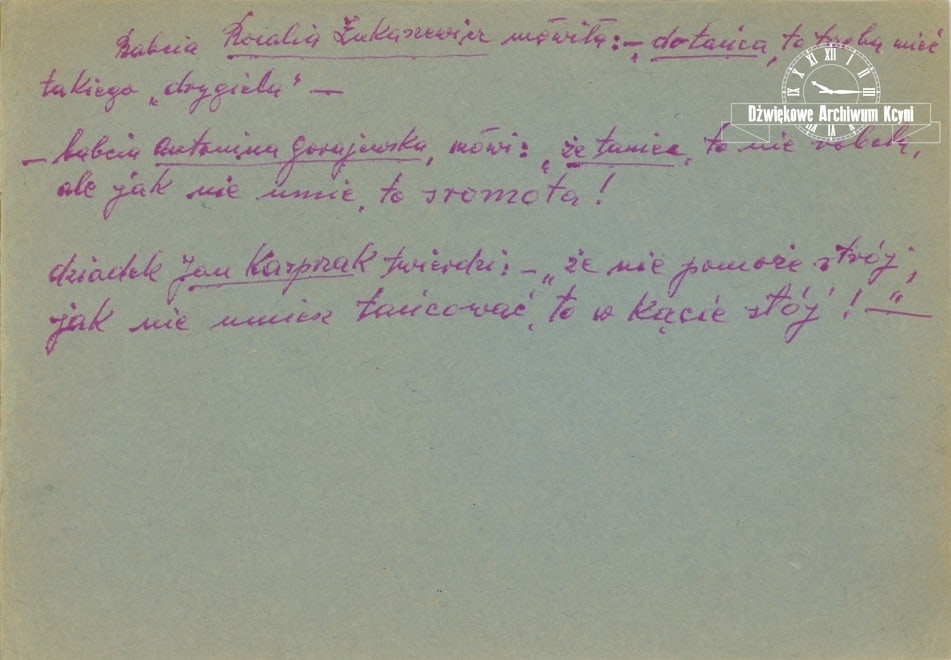 Babcia Rozalia Żukaszewicz mówiła: – „do tańca, to trzeba mieć
takiego „drygielu" —
– babcia Antonina Gorajewska, mówi: „że taniec, to nie robota,
ale jak nie umie, to sromota!
dziadek Jan Karpszak twierdzi: – „że nie pomoże strój,
jak nie umiesz tańcować, to w kącie stój! —"
Dźwiękowe Archiwum Kcyni